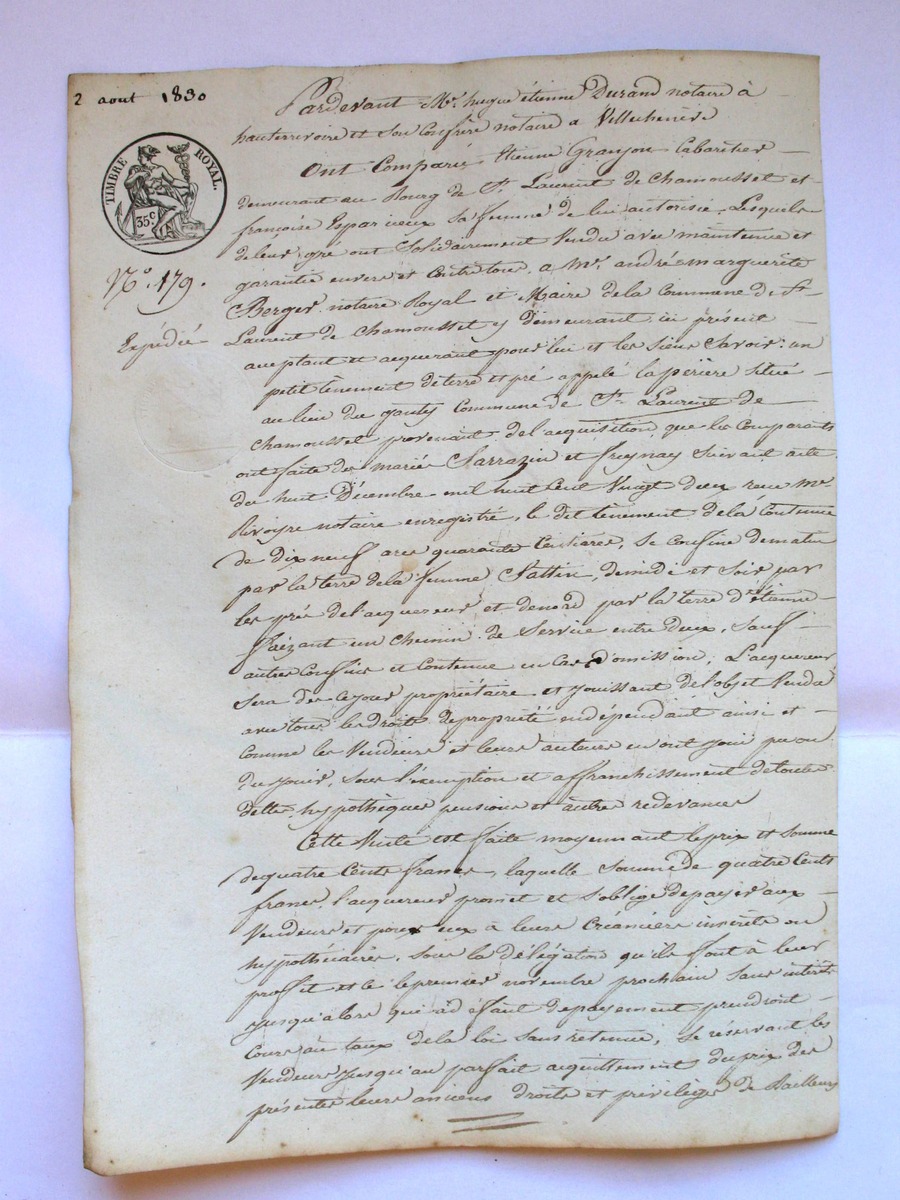 2 aout 1830
TIMBRE ROYAL.
35.c
N.o 179.
Expédié
Pardevant Mr. hugue étienne Durand notaire à
hauterivoire et son Confrere notaire a Villechenève
Ont Comparu Etienne Granjon Cabaretier
demeurant au Bourg de St. Laurent de Chamousset et
françoise Esparieux sa femme de lui autorisée. Lesquels
de leur gré ont Solidairement Vendu avec maintenue et
garantie envers et contre tous. a Mr. andré marguerite
Berger notaire Royal et Maire de la Commune de St
Laurent de Chamousset y demeurant ici présent
acceptant et acquerant pour lui et les siens Savoir: un
petit tènement de terre et pré appelé la periere situé
au lieu du Commune de St. Laurent de
Chamousset provenant de l'acquisition que les Comparants
ont faite des mariés Sarrazin et suivant acte
du huit Décembre mil huit Cent Vingt deux recu me
Rivoyre notaire enregistré, le dit tènement de la Contenue
de dix neuf ares quarante Centiares, se Confine de matin
par la terre de la femme de midi et Soir par
les prés de l'acquereur et de nord par la terre d'étienne
un Chemin de Service entre deux, Sauf
autres Confins et Contenue en Cas d'omission, L'acquereur
sera des ce jour propriétaire et jouissant de l'objet Vendu
avec tous les droits de propriété en dépendant ainsi et
Comme les Vendeurs et leurs auteurs en ont joui pu ou
du jouir, sous l'exemption et affranchissement de toutes
dettes hypothèques pensions et autres redevances
Cette Vente est faite moyennant le prix et somme
de quatre Cents francs, laquelle somme de quatre Cents
francs l'acquereur promet et s'oblige de payer aux
Vendeurs et pour eux à leurs Créanciers inscrits ou
hypothécaires, sous la délégation qu'ils font à leur
profit et ce le premier novembre prochain Sans intérêts
jusqu'alors qui à défaut de payement prendront
Cours au taux de la loi sans retenue, Se réservant les
Vendeurs jusqu'au parfait acquittement du prix des
présentes leurs anciens droits et privilèges de Bailleurs